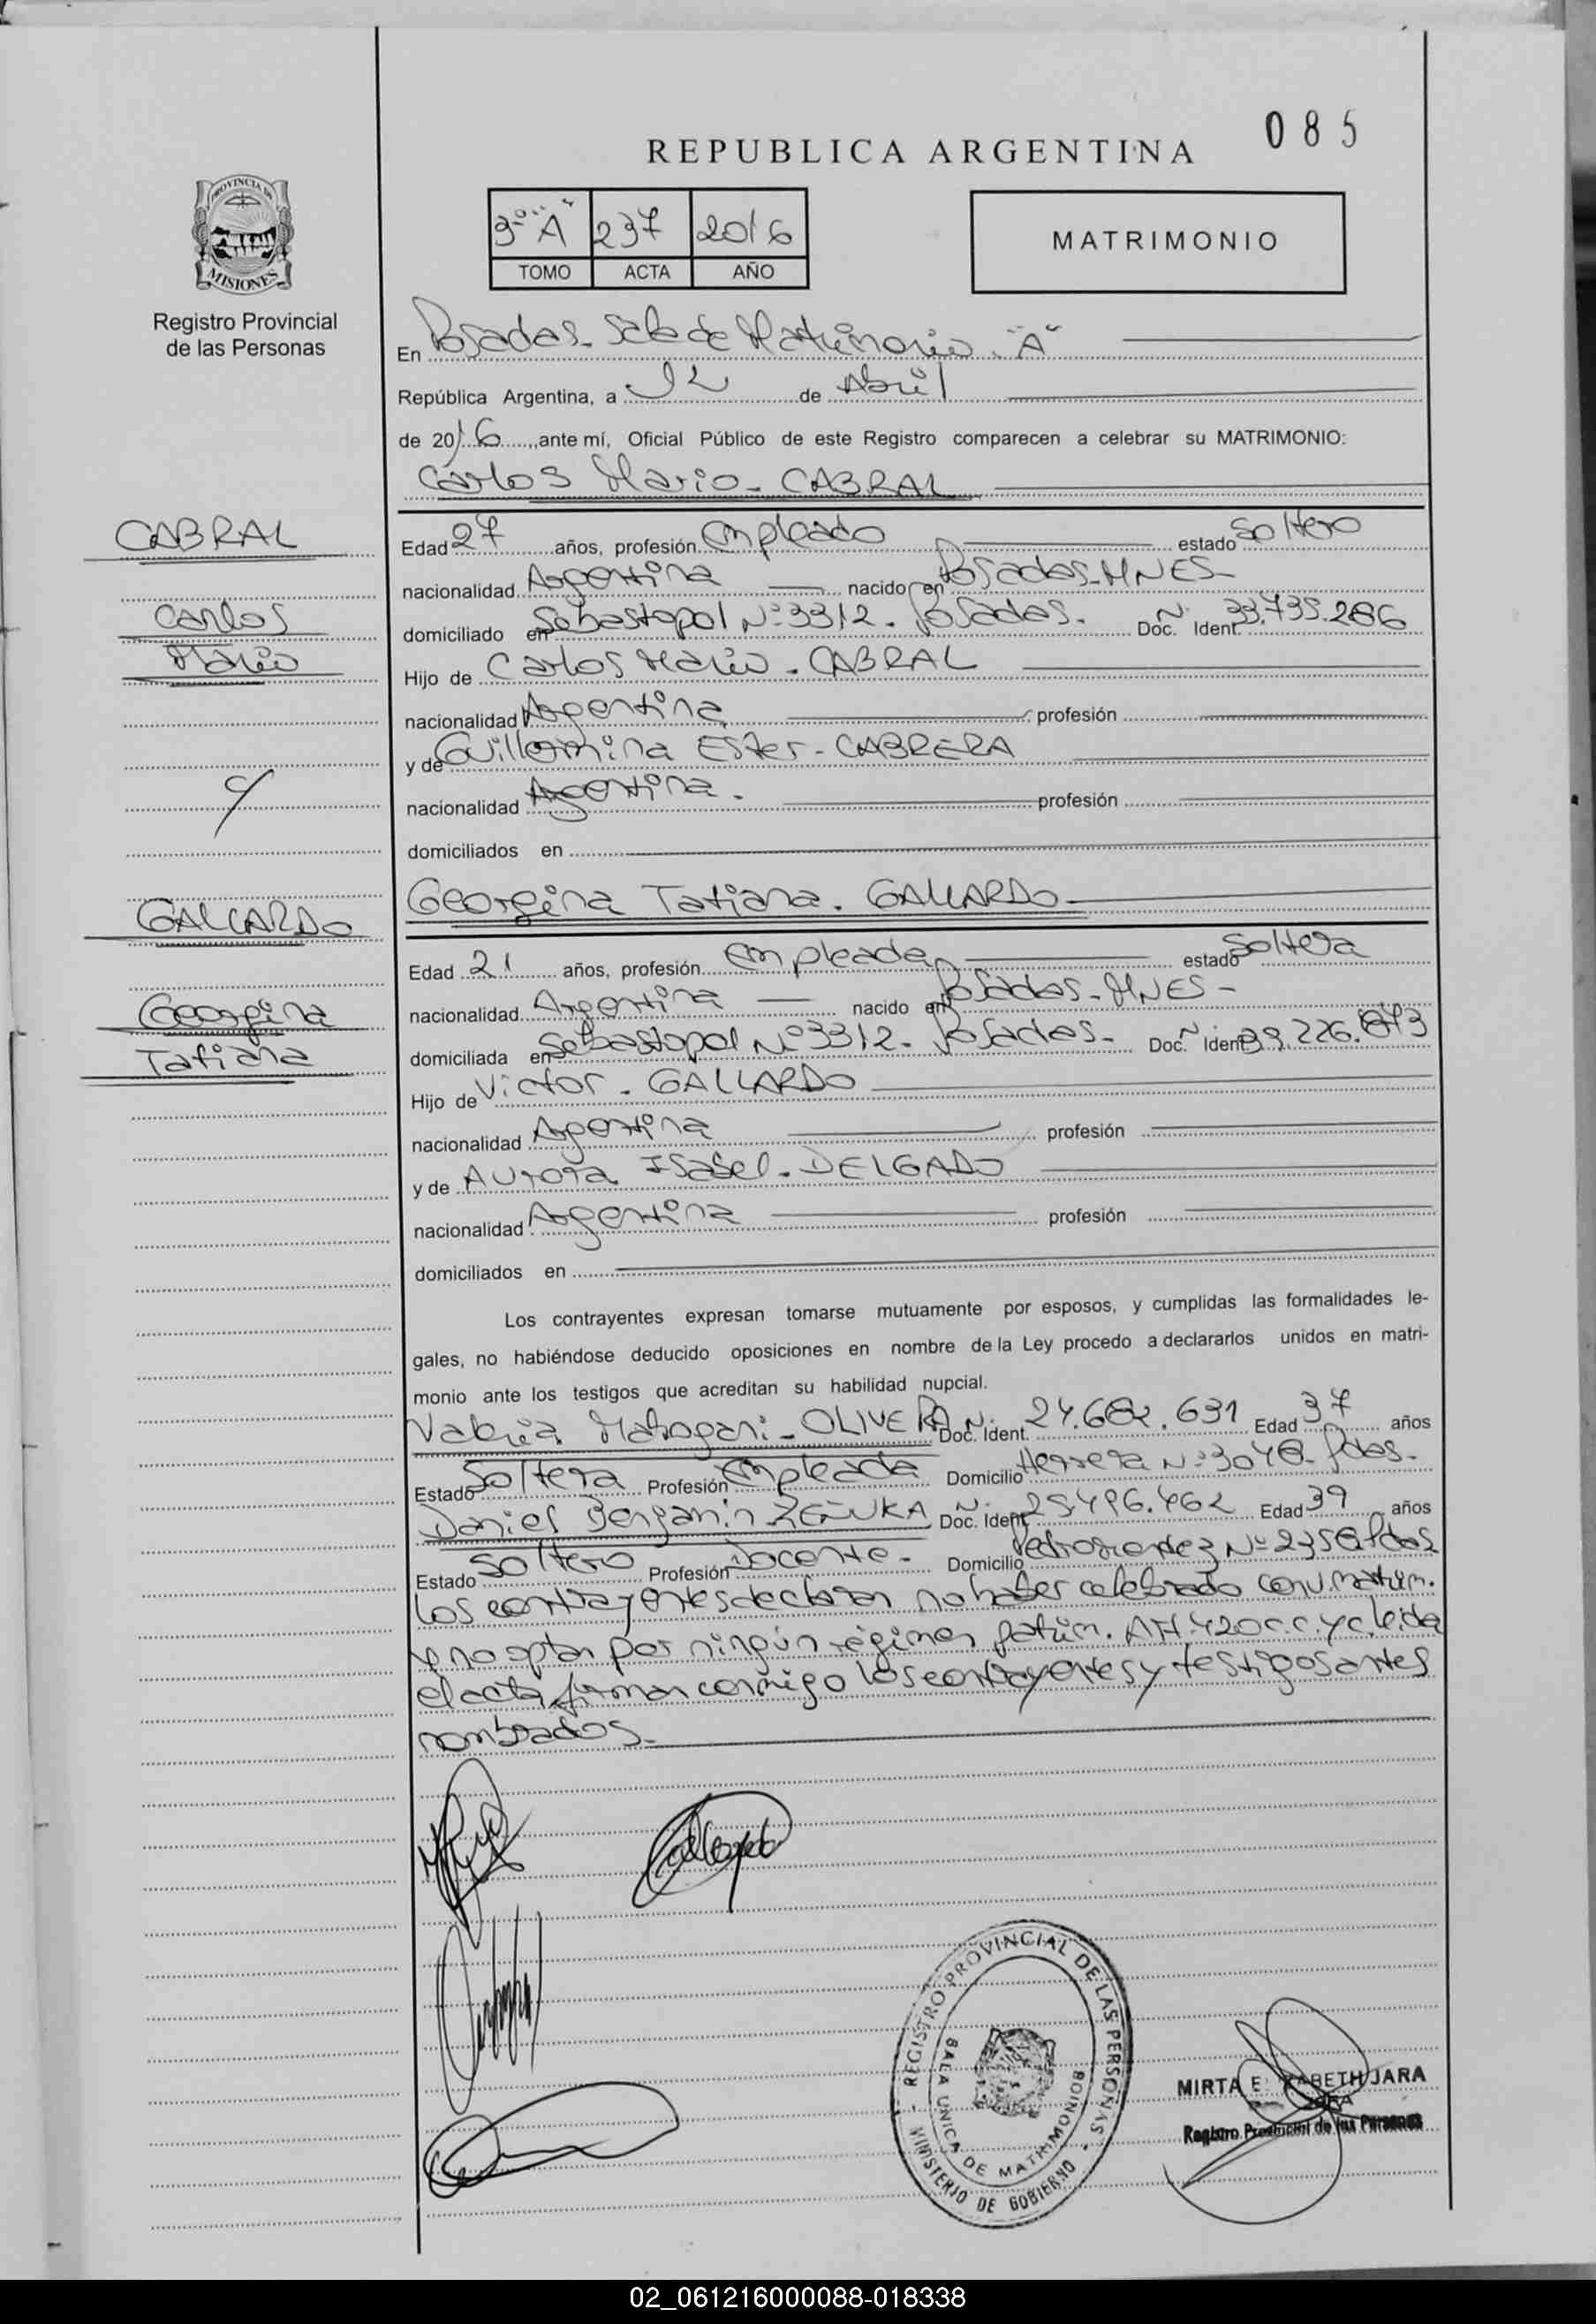 085
REPUBLICA ARGENTINA
PROVINCIA DE
MISIONES
Registro Provincial
de las Personas
3º "A" 237 2016
TOMO ACTA AÑO
MATRIMONIO
En Posadas - Sala de Matrimonio "A"
República Argentina, a 12 de Abril
de 2016, ante mí, Oficial Público de este Registro comparecen a celebrar su MATRIMONIO:
Carlos Mario - CABRAL
CABRAL
Carlos
Mario
Edad 27 años, profesión Empleado estado Soltero
nacionalidad Argentina nacido en Posadas-MNES-
domiciliado en Sebastopol Nº 3312. Posadas. Doc. Ident. Nº 33.735.286
Hijo de Carlos Mario - CABRAL
nacionalidad Argentina profesión
y de Guillermina Ester - CABRERA
nacionalidad Argentina. profesión
domiciliados en
y
Georgina Tatiana. GALLARDO
GALLARDO
Georgina
Tatiana
Edad 21 años, profesión Empleada estado Soltera
nacionalidad Argentina nacido en Posadas-MNES-
domiciliada en Sebastopol Nº 3312. Posadas- Doc. Ident. Nº 39.226.873
Hijo de Victor - GALLARDO
nacionalidad Argentina profesión
y de Aurora Isabel - DELGADO
nacionalidad Argentina profesión
domiciliados en
Los contrayentes expresan tomarse mutuamente por esposos, y cumplidas las formalidades le-
gales, no habiéndose deducido oposiciones en nombre de la Ley procedo a declararlos unidos en matri-
monio ante los testigos que acreditan su habilidad nupcial.
Valeria - OLIVERA Doc. Ident. Nº 27.682.631 Edad 37 años
Estado Soltera Profesión Empleada Domicilio Herrera Nº 3048- Pdas-
Daniel Benjamin ZEÑUKA Doc. Ident. Nº 25.496.462 Edad 39 años
Estado Soltero Profesión Docente - Domicilio Pedro Mendez Nº 2358 Pdas
Los contrayentes declaran no haber celebrado conv. matrim.
y no optan por ningún régimen patrim. Art. 420 C.C.y C. leída
el acta firman conmigo los contrayentes y testigos antes
nombrados.
REGISTRO PROVINCIAL DE LAS PERSONAS
SALA UNICA DE MATRIMONIOS
MINISTERIO DE GOBIERNO
MIRTA JARA
Registro Provincial de las Personas
02_061216000088-018338